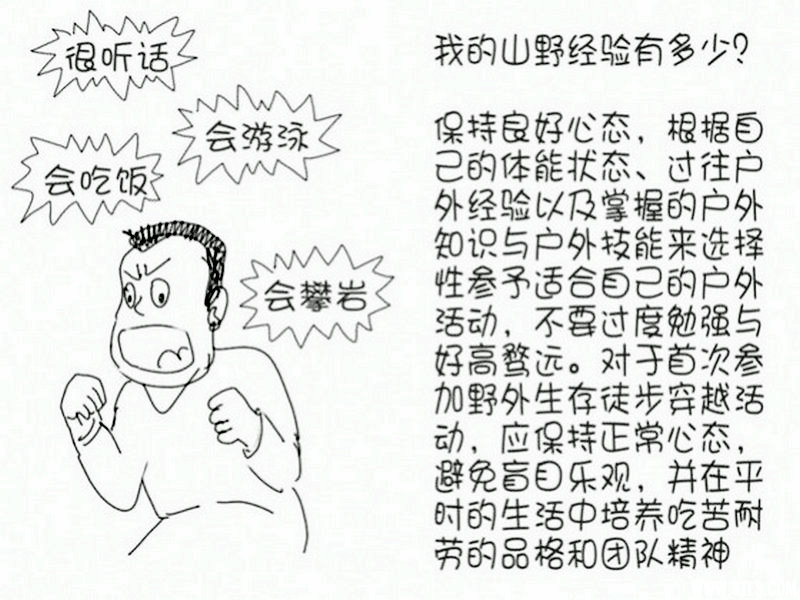 很听话
会游泳
会吃饭
会攀岩
我的山野经验有多少？
保持良好心态，根据自
己的体能状态、过往户
外经验以及掌握的户外
知识与户外技能来选择
性参予适合自己的户外
活动，不要过度勉强与
好高骛远。对于首次参
加野外生存徒步穿越活
动，应保持正常心态，
避免盲目乐观，并在平
时的生活中培养吃苦耐
劳的品格和团队精神